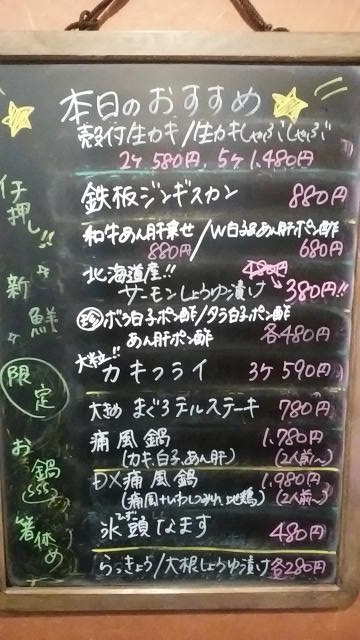 本日のおすすめ
殻付生カキ/生カキしゃぶしゃぶ
2ヶ580円、5ヶ1,480円
鉄板ジンギスカン 880円
和牛あん肝乗せ/W白子&あん肝ポン酢
880円 680円
北海道産!! 480円
サーモンしょうゆ漬け→380円!!
珍ボラ白子ポン酢/タラ白子ポン酢
あん肝ポン酢 各480円
大粒!!
カキフライ 3ヶ590円
大きめ まぐろテルステーキ 780円
痛風鍋 1,780円
(カキ、白子、あん肝) (2人前〜)
DX痛風鍋 1,980円
(痛風+いわしつみれ、地鶏) (2人前〜)
ひず
氷頭なます 480円
らっきょう/大根しょうゆ漬け 各280円
イチ押し!!
新鮮
限定
お鍋
箸休め